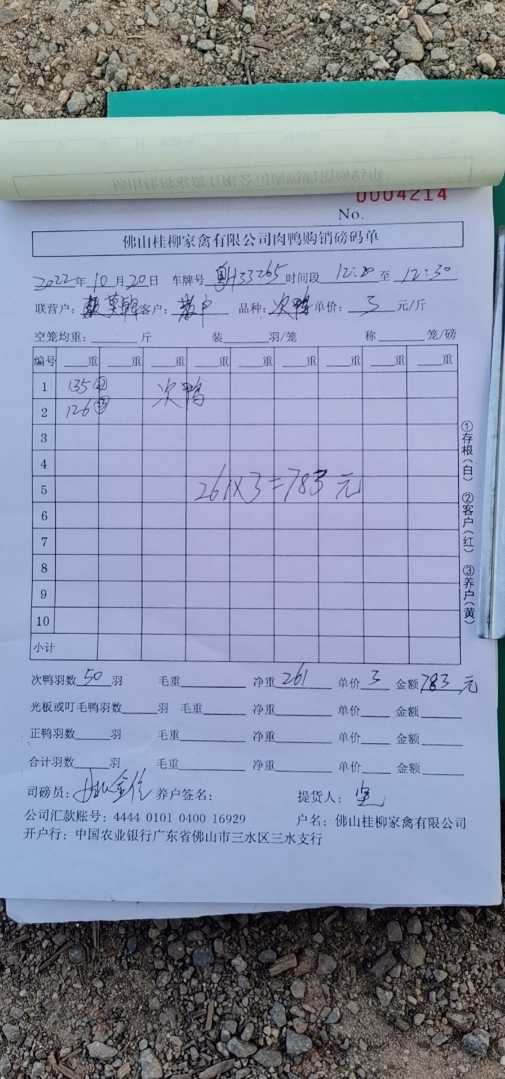 0004214
No.
佛山桂柳家禽有限公司肉鸭购销磅码单
2022年10月20日 车牌号 粤H33265 时间段 12:20 至 12:30
联营户: 客户: 散户 品种: 次鸭 单价: 3 元/斤
空笼均重: 斤 装 羽/笼 称 笼/磅
编号 重 重 重 重 重 重 重 重 重
1 135 次鸭
2 126
3
4
5 261×3=783元
6
7
8
9
10
小计
①存根(白) ②客户(红) ③养户(黄)
次鸭羽数 50 羽 毛重 净重 261 单价 3 金额 783元
光板或叮毛鸭羽数 羽 毛重 净重 单价 金额
正鸭羽数 羽 毛重 净重 单价 金额
合计羽数 羽 毛重 净重 单价 金额
司磅员: 养户签名: 提货人:
公司汇款账号: 4444 0101 0400 16929 户名: 佛山桂柳家禽有限公司
开户行: 中国农业银行广东省佛山市三水区三水支行